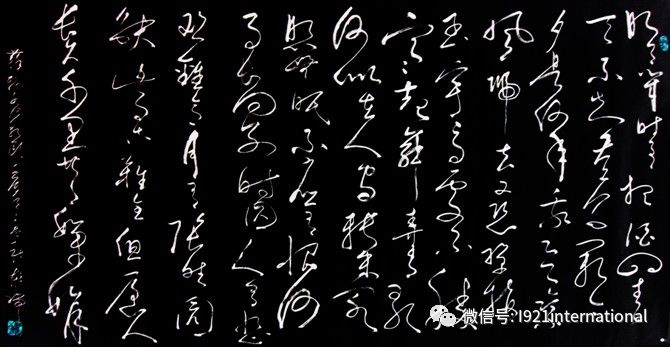 明月几时有把酒问青
天不知天上宫阙今
夕是何年我欲乘
风归去又恐琼楼
玉宇高处不胜
寒起舞弄清影
何似在人间转朱阁
照无眠不应有恨何
事长向别时圆人有悲
欢离合月有阴晴圆
缺此事古难全但愿人
长久千里共婵娟
微信号: I921international